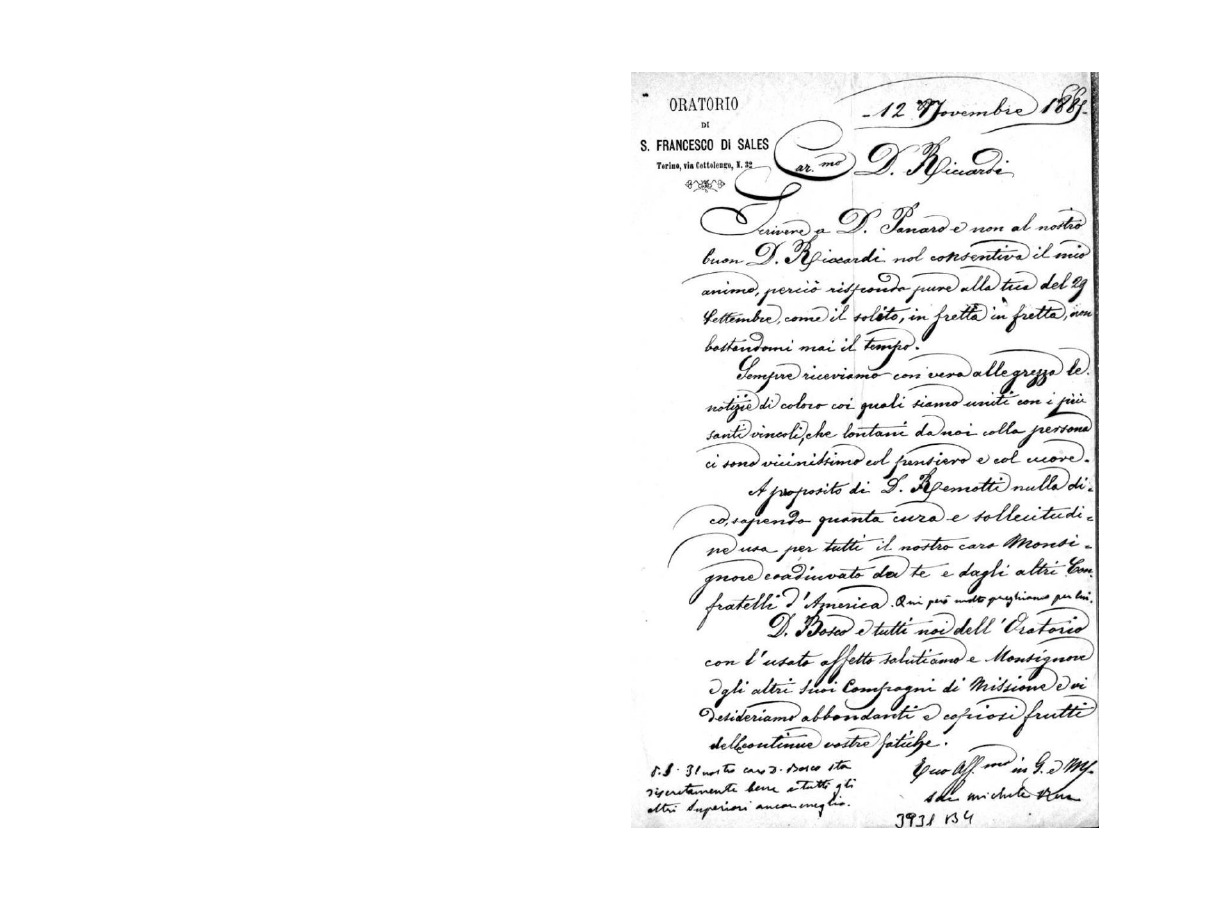 ORATORIO
DI
S. FRANCESCO DI SALES
Torino, via Cottolengo, N. 32
- 12 Novembre 1885-
Car.mo D. Riccardi
Scrivere a D. Panaro e non al nostro
buon D. Riccardi nol consentiva il mio
animo, perciò rispondo pure alla tua del 29
Settembre, come il solito, in fretta in fretta, non
bastandomi mai il tempo.
Sempre riceviamo con vera allegrezza le
notizie di coloro coi quali siamo uniti con i più
santi vincoli, che lontani da noi colla persona
ci sono vicinissimo col pensiero e col cuore.
A proposito di D. Remotti nulla di-
co, sapendo quanta cura e sollecitudi=
ne usa per tutti il nostro caro Monsi=
gnore coadiuvato da te e dagli altri Con
fratelli d'America. Qui però molto preghiamo per lui.
D. Bosco e tutti noi dell'Oratorio
con l'usato affetto salutiamo e Monsignore
e gli altri suoi Compagni di Missione e vi
desideriamo abbondanti e copiosi frutti
delle continue vostre fatiche.
Tuo Aff.mo in G. e M.
Sac Michele Rua
P.S. Il nostro caro D. Bosco sta
discretamente bene e tutti gli
altri Superiori ancor meglio.
3931 B4